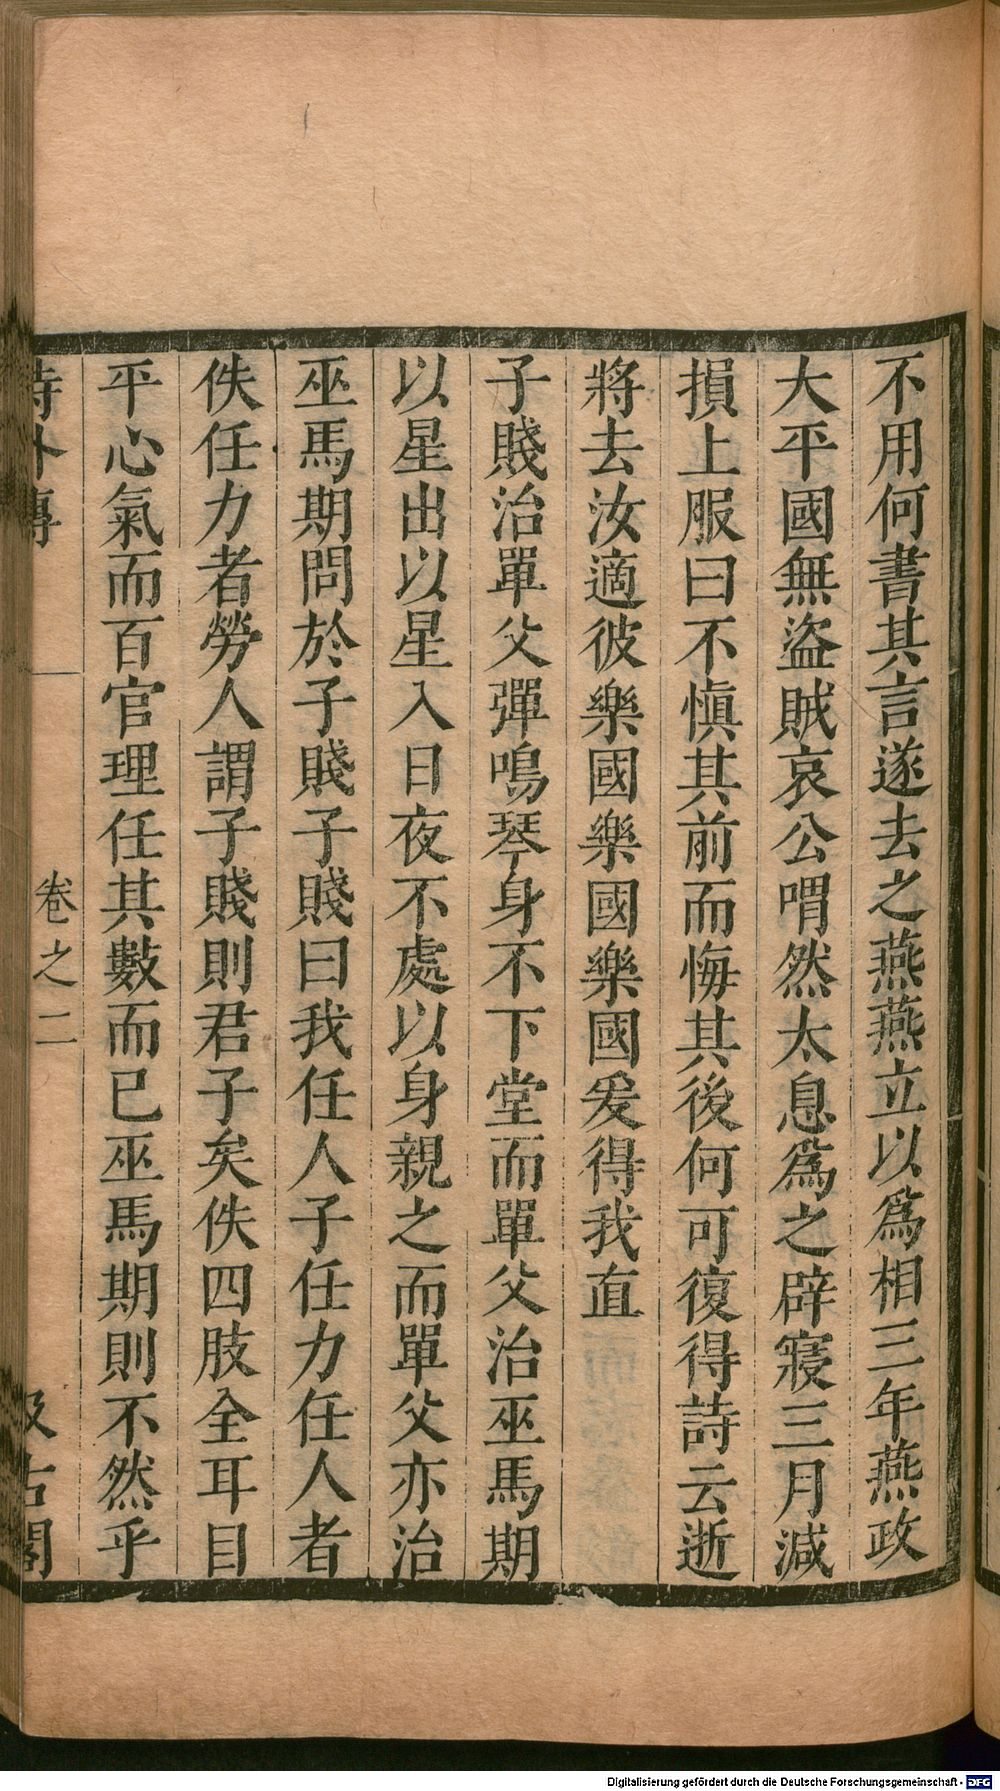 不用何書其言遂去之燕燕立以爲相三年燕政
大平國無盜賊哀公喟然太息爲之辟寢三月減
損上服曰不愼其前而悔其後何可復得詩云逝
將去汝適彼樂國樂國樂國爰得我直
子賤治單父彈鳴琴身不下堂而單父治巫馬期
以星出以星入日夜不處以身親之而單父亦治
巫馬期問於子賤子賤曰我任人子任力任人者
佚任力者勞人謂子賤則君子矣佚四肢全耳目
平心氣而百官理任其數而已巫馬期則不然乎
詩外傳 卷之二 汲古閣
Digitalisierung gefördert durch die Deutsche Forschungsgemeinschaft - DFG